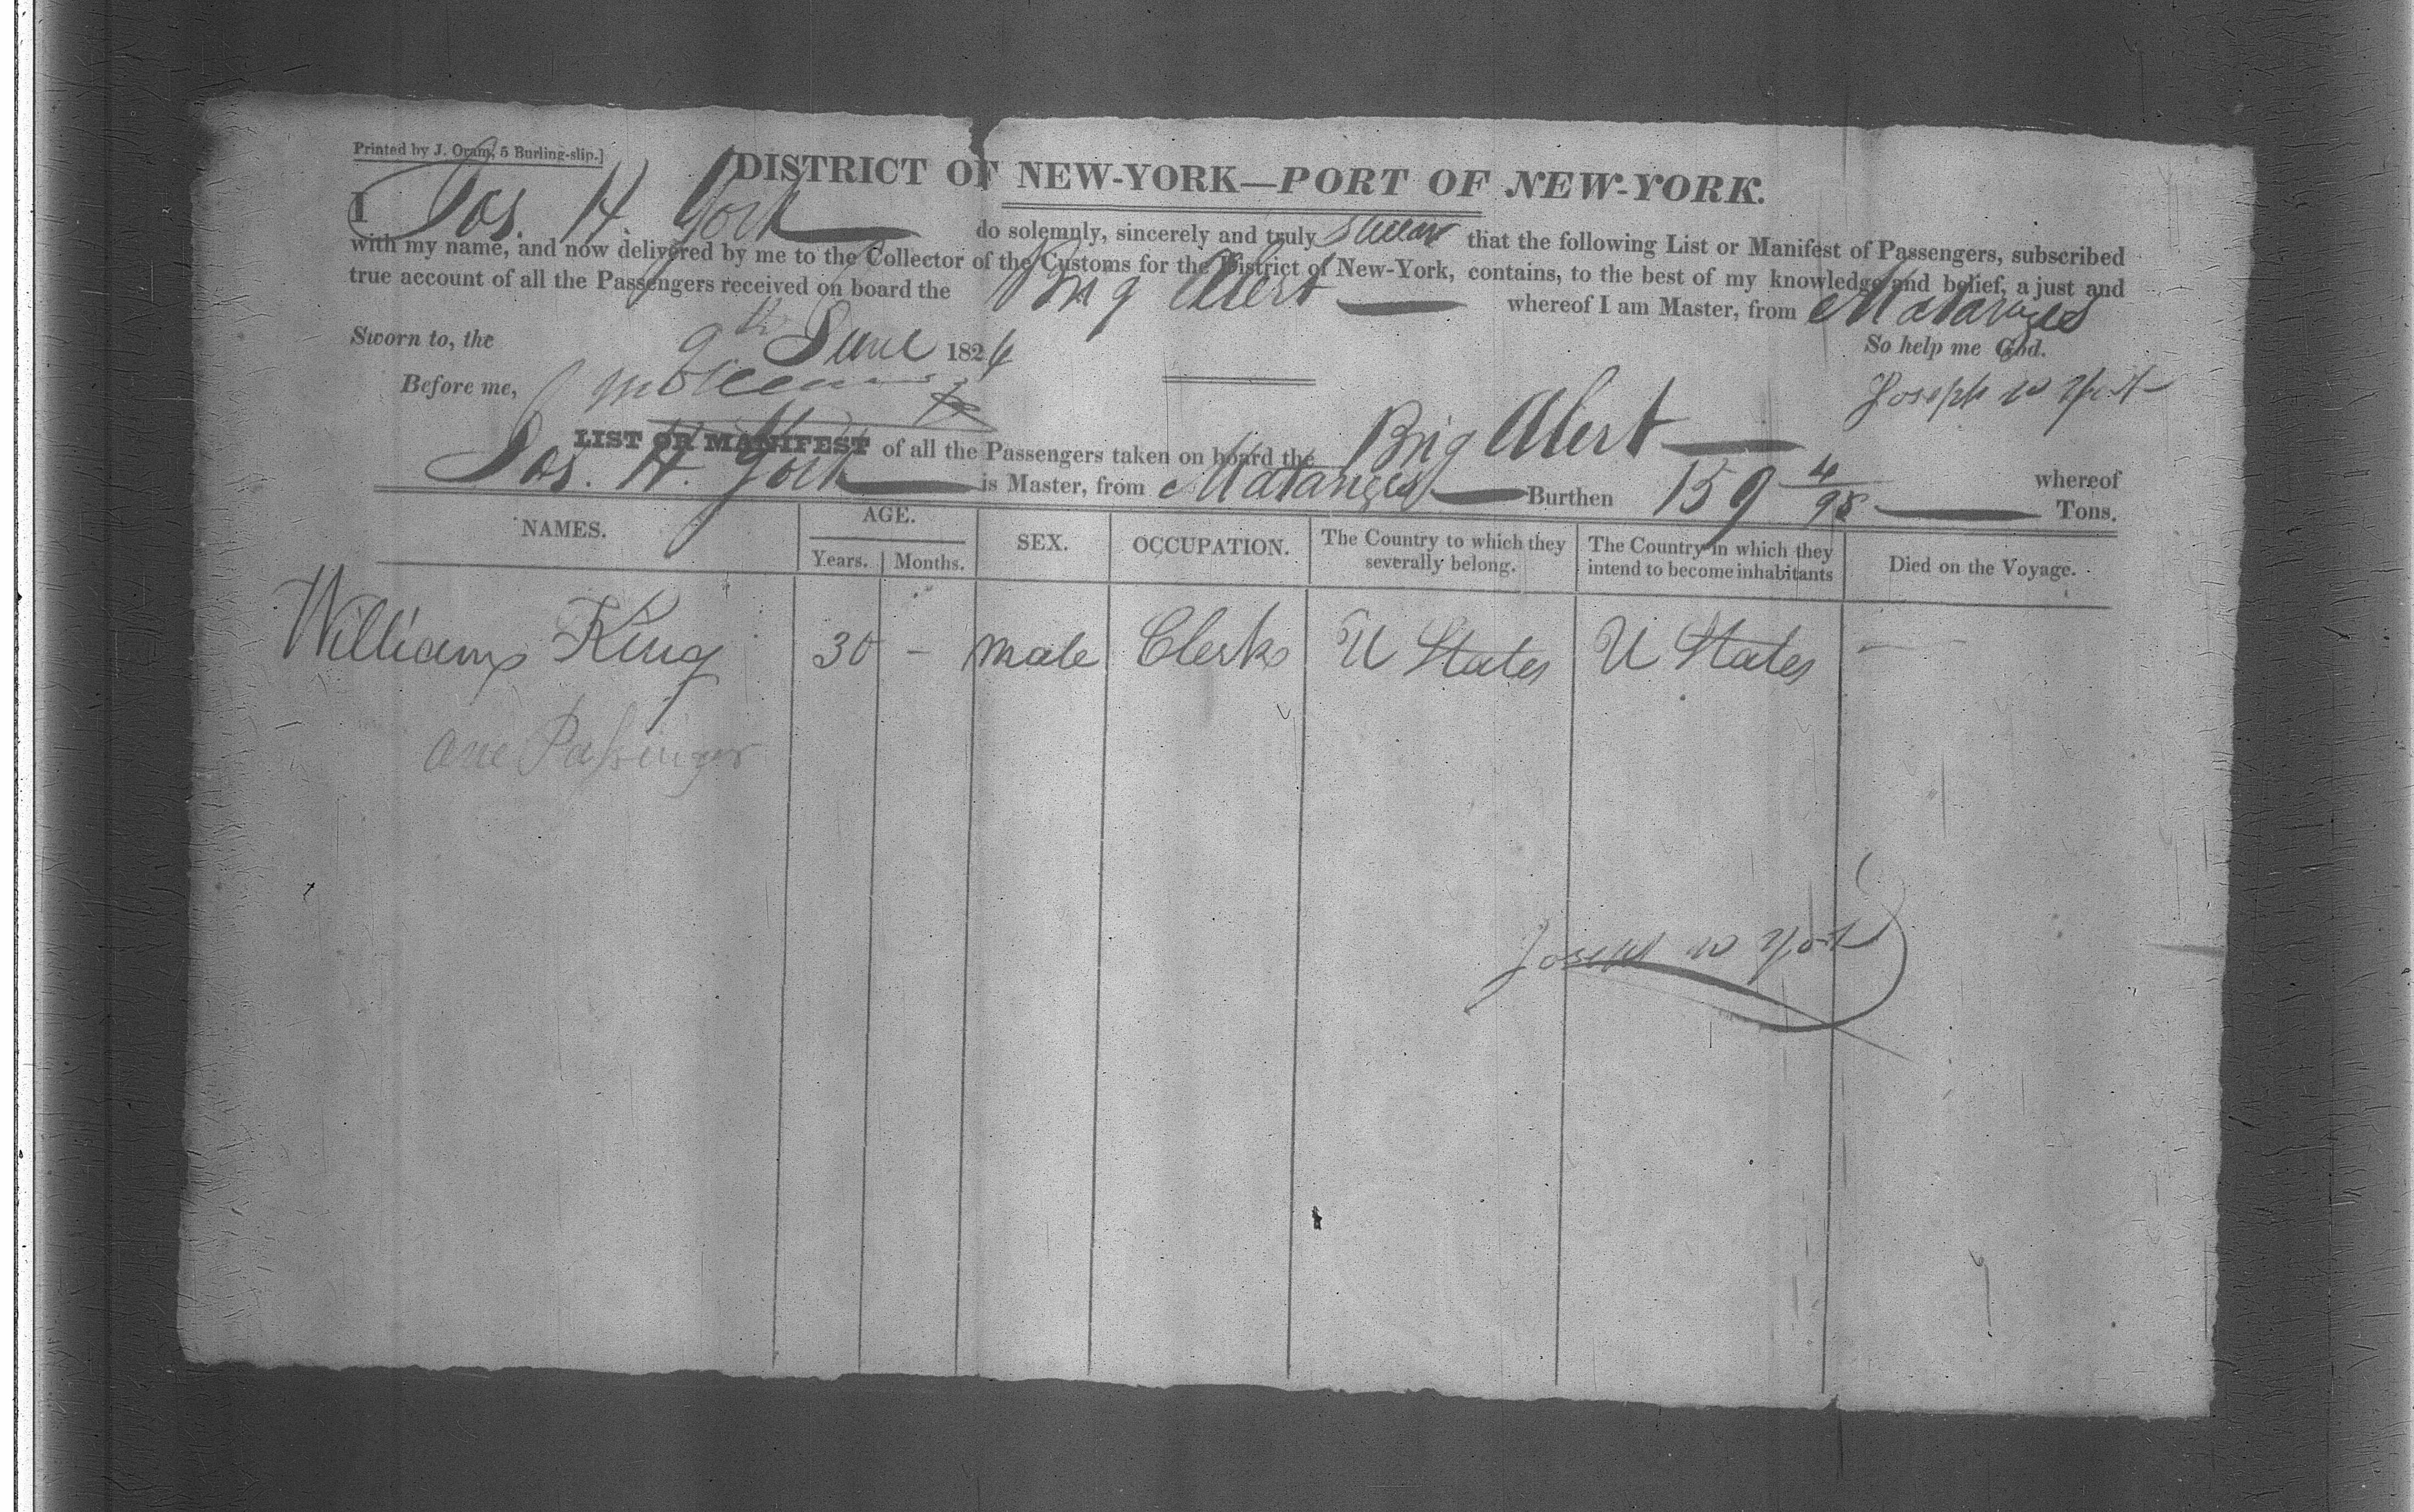 Printed by J. Oram, 5 Burling-slip.]
DISTRICT OF NEW-YORK—PORT OF NEW-YORK.
I Jos. H York do solemnly, sincerely and truly Swear that the following List or Manifest of Passengers, subscribed
with my name, and now delivered by me to the Collector of the Customs for the District of New-York, contains, to the best of my knowledge and belief, a just and
true account of all the Passengers received on board the Brig Alert whereof I am Master, from Matanzes
Sworn to, the 9th June 1826 So help me God.
Before me, Joseph W York
LIST OR MANIFEST of all the Passengers taken on board the Brig Alert whereof
Jos. H. York is Master, from Matanzes Burthen 159 4/95 Tons.
NAMES. AGE. SEX. OCCUPATION. The Country to which they severally belong. The Country in which they intend to become inhabitants Died on the Voyage.
Years. Months.
William King 30 - male Clerk U States U States —
One Passenger
Joseph W York